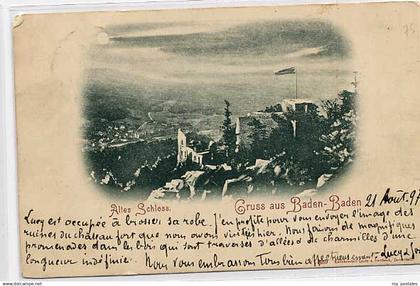 Altes Schloss.
Gruss aus Baden-Baden
21 Août 97
Lucy est occupée à brosser sa robe. J'en profite pour vous envoyer l'image des
ruines du château fort que nous avons visité hier. Nous faisons de magnifiques
promenades dans les bois qui sont traversés d'allées de charmilles d'une
longueur indéfinie. Nous vous embrassons tous bien affectueusement. Lucy